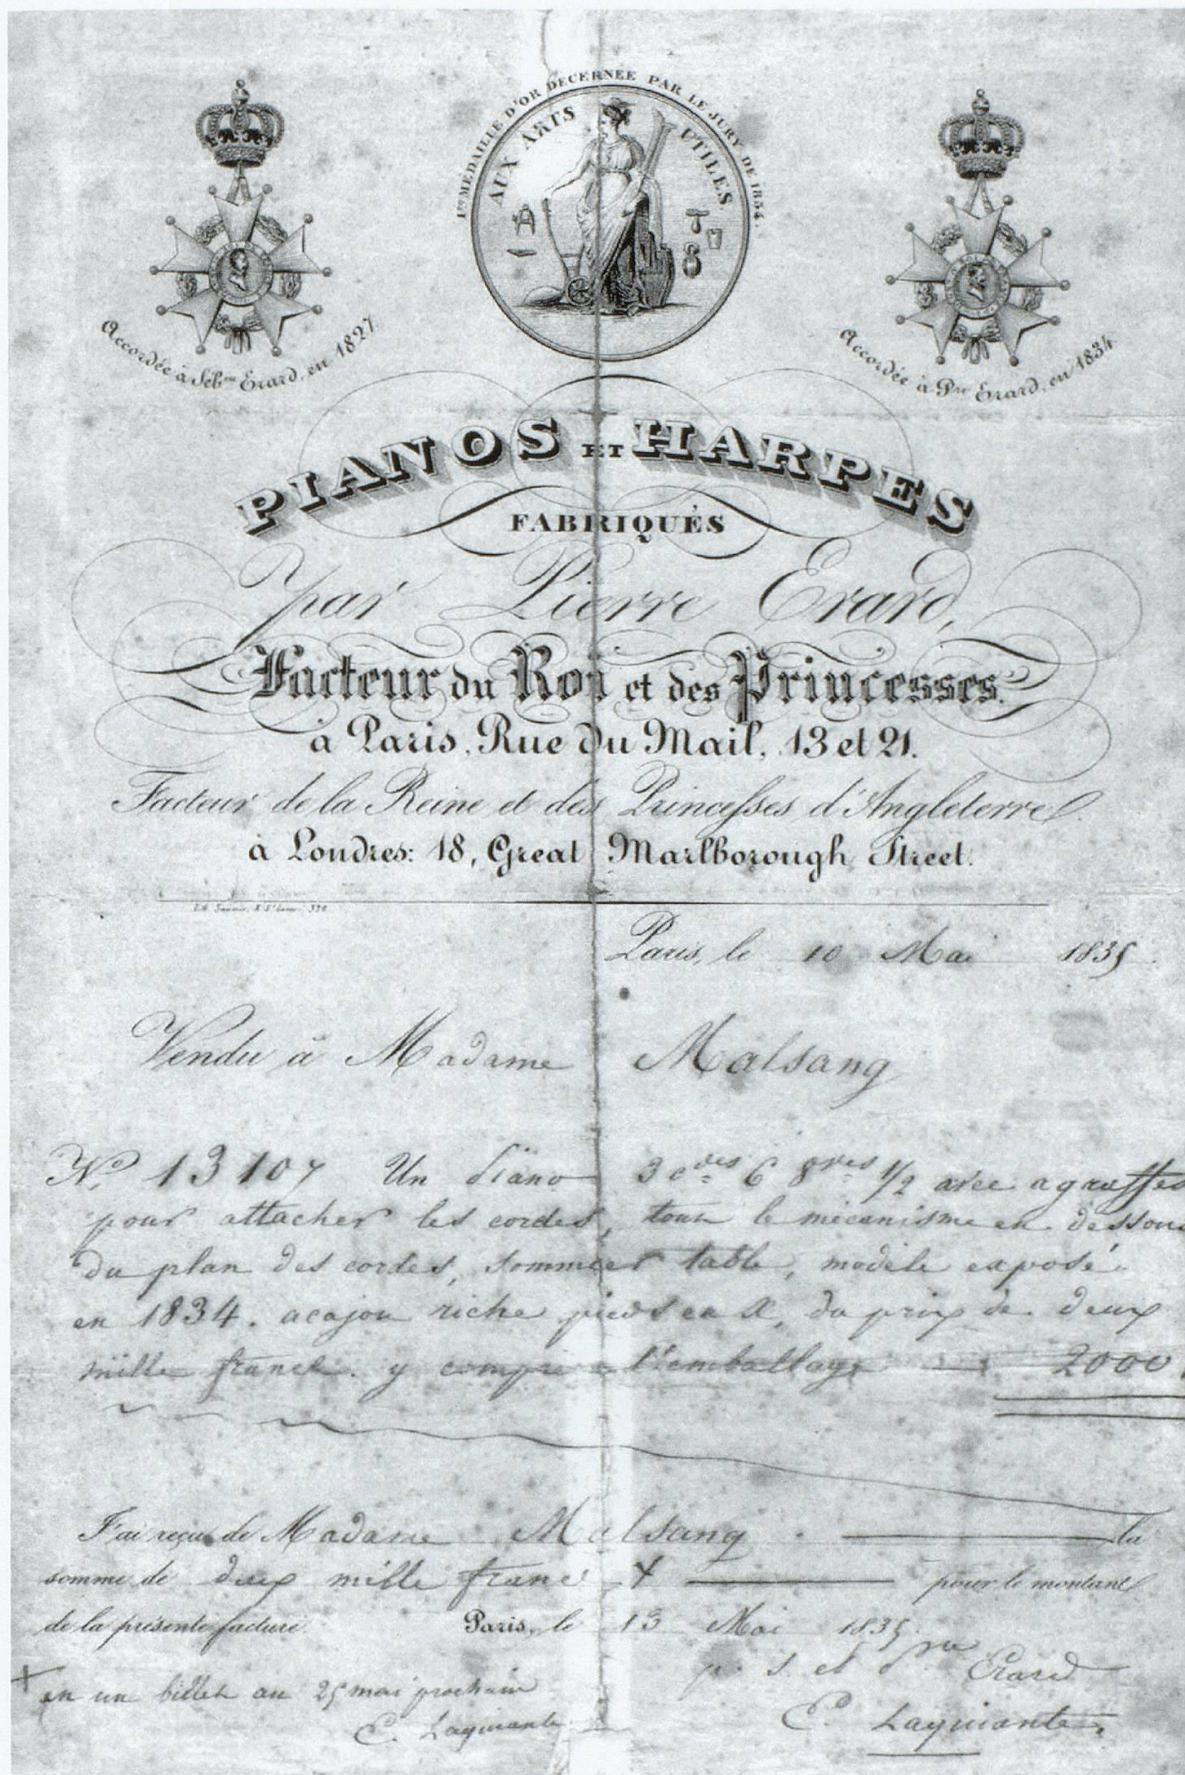 1re MEDAILLE D'OR DECERNEE PAR LE JURY DE 1834.
AUX ARTS UTILES
Accordée à Sében Erard, en 1827.
Accordée à Pre Erard, en 1834.
PIANOS ET HARPES
FABRIQUÉS
par Pierre Erard,
Facteur du Roi et des Princesses.
à Paris, Rue du Mail, 13 et 21.
Facteur de la Reine et des Princesses d'Angleterre
à Londres: 18, Great Marlborough Street.
Paris, le 10 Mai 1835.
Vendu à Madame Malsang
No 13107 Un piano 3 cdes 6 8ves 1/2 avec agraffes
pour attacher les cordes, tout le mécanisme en dessous
du plan des cordes, sommier table, modèle exposé
en 1834. acajou riche pieds en X, du prix de deux
mille francs. y compris l'emballage 2000
J'ai reçu de Madame Malsang la
somme de deux mille francs X pour le montant
de la présente facture. Paris, le 13 Mai 1835.
p. S. et Pre Erard
X en un billet au 25 mai prochain
C. Laquiante
C. Laquiante.